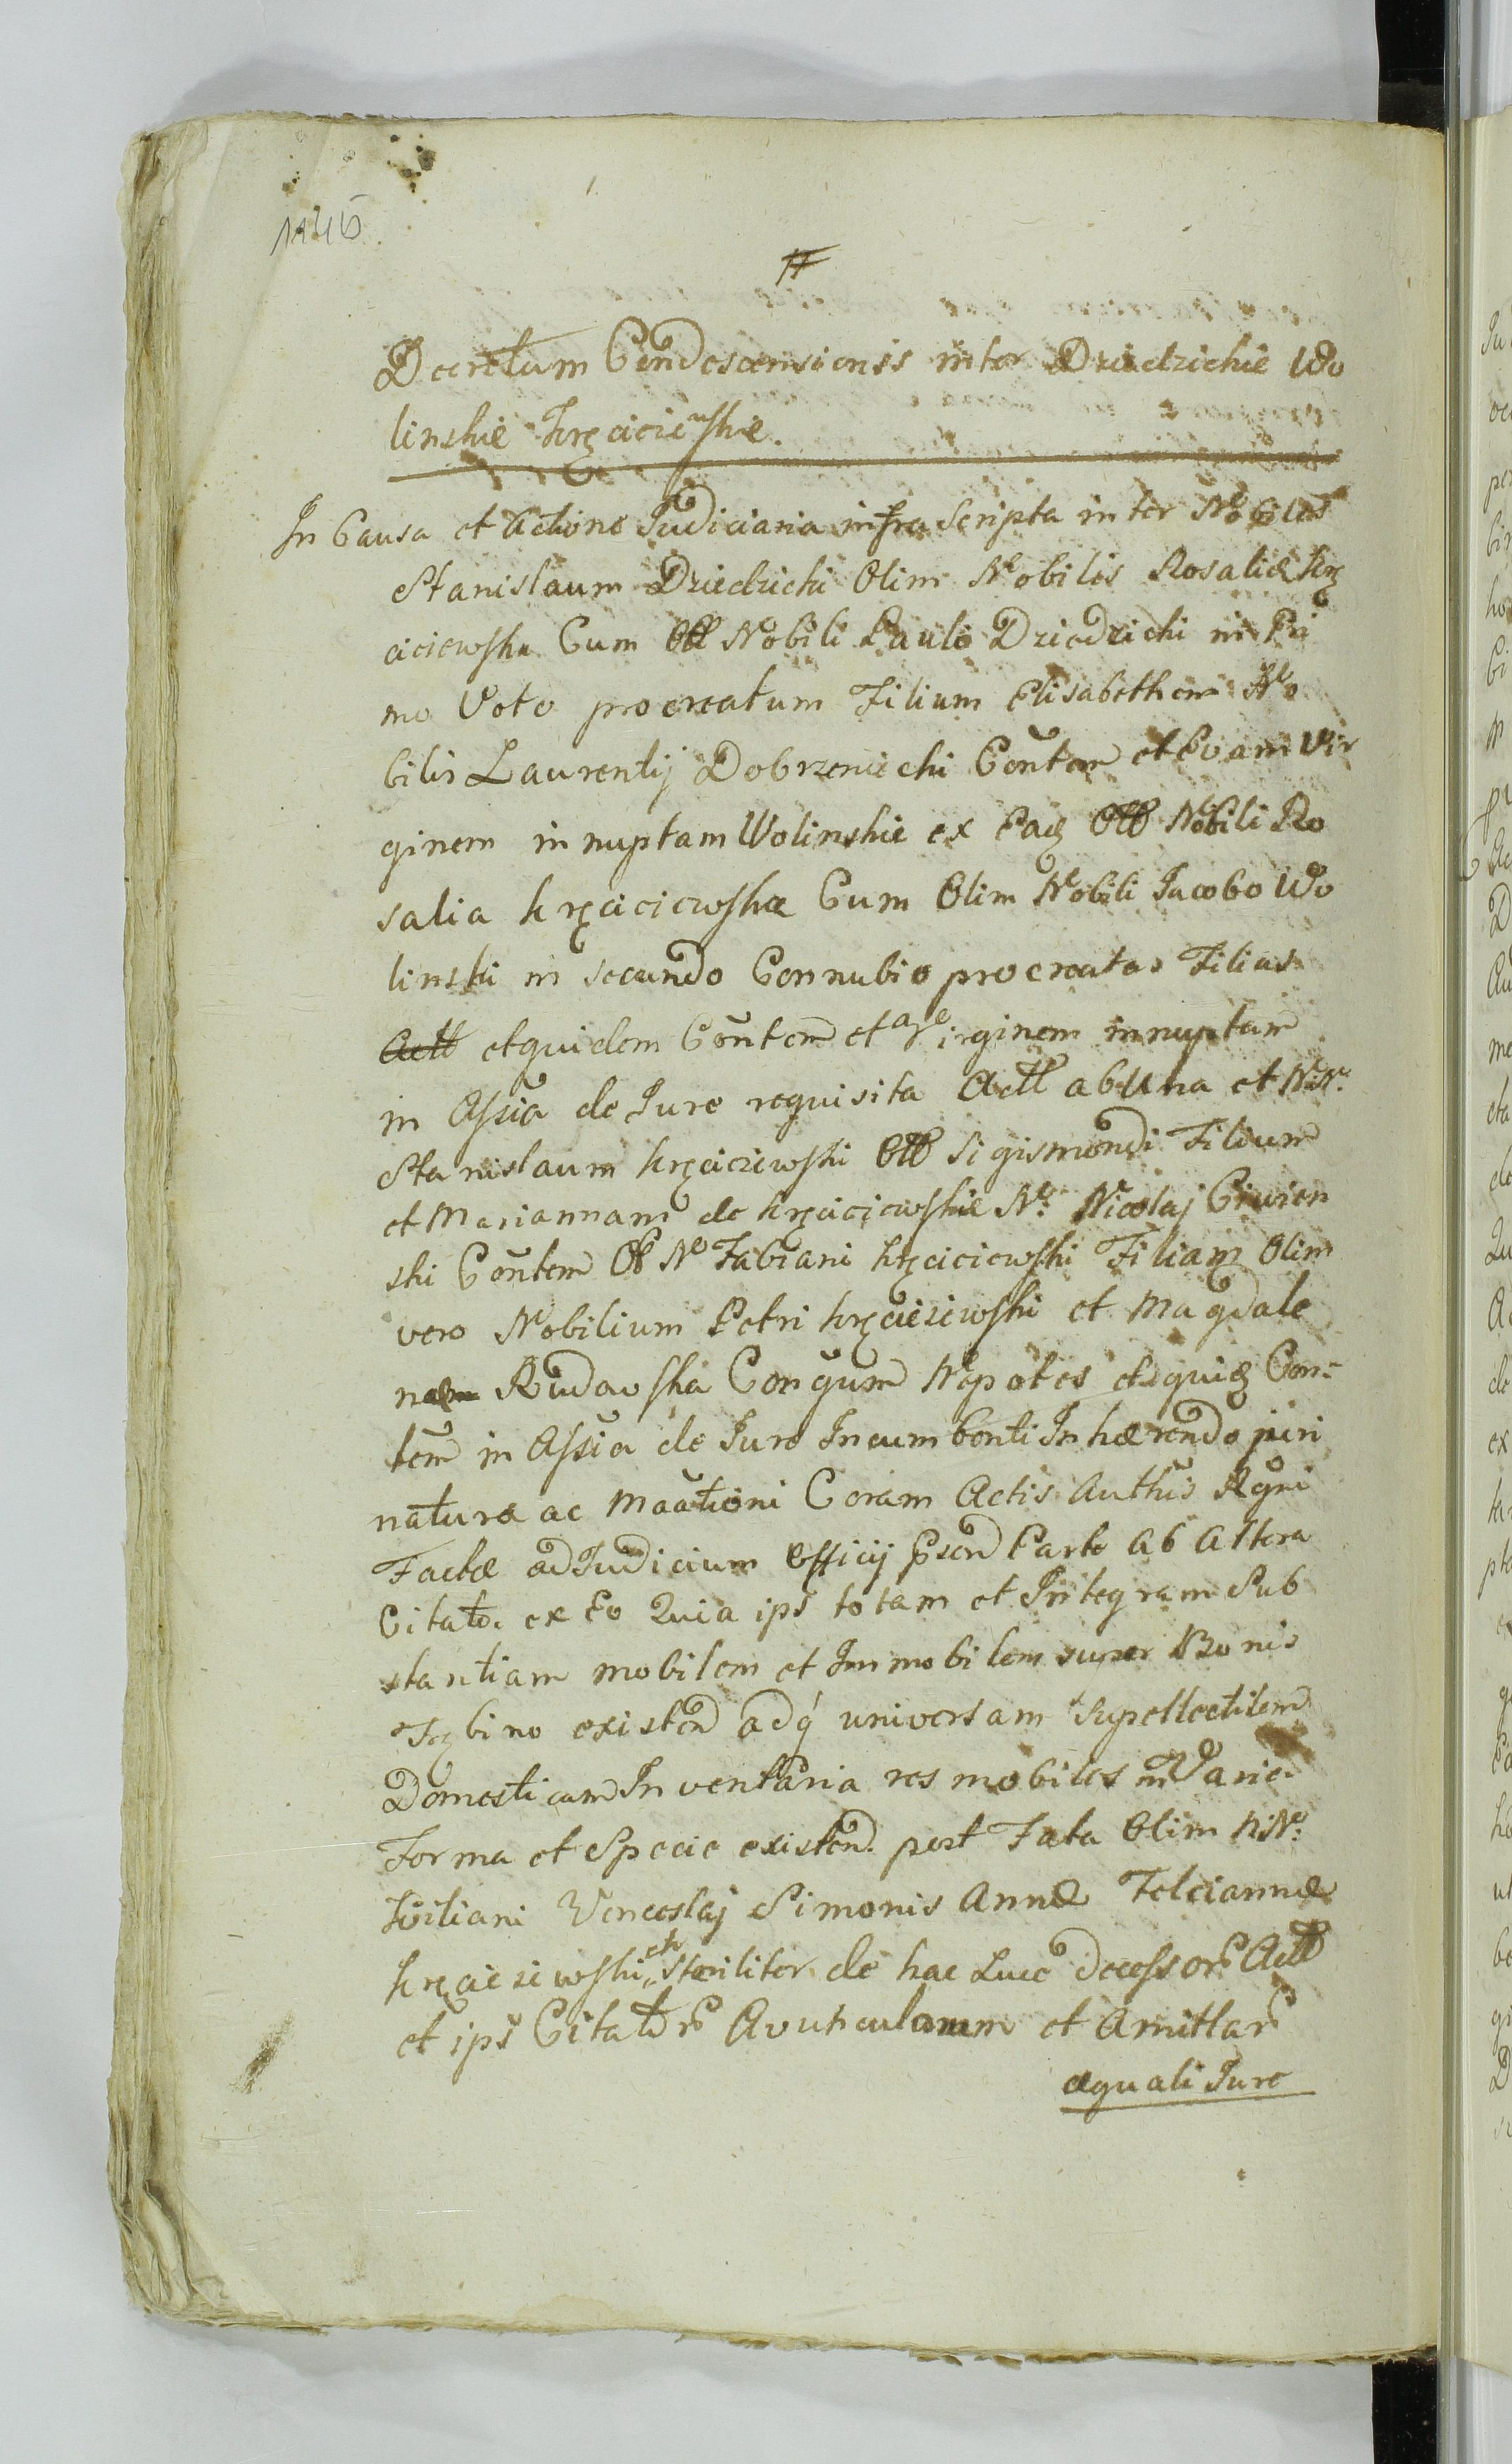 Decretum Condescensionis inter Dziedzickie Wo
linskie Kręciciewskie.
In Causa et Actione Judiciaria infra Scripta inter Nobiles
Stanislaum Dziedzicki Olim Nobilis Rosaliæ Krę
ciciewska Cum Oll Nobili Paulo Dziedzicki in Pri
mo Voto procreatum Filium Elisabetham No
bilis Laurentij Dobrzeniecki Con̄tem et Evam Vir
ginem innuptam Wolinskie ex Eaq Oll Nobili Ro
salia Kręciciewska Cum Olim Nobili Jacobo Wo
linski in secundo Connubio procreatas Filias
et quidem Con̄tem et Virginem innuptam
in Assīa de Jure requisita Actt ab Una et NN.
Stanislaum Kręciciewski Oll Sigismondi Filium
et Mariannam de Kręciciewskie N. Nicolaj Criwien
ski Con̄tem Ol N Fabiani Kręciciewski Filiam Olim
vero Nobilium Petri Kręciciewski et Magdale
Rudawska Conjgum Nepotes et quiq Con
tem in Assīa de Jure Incumbenti Inhærendo juri
naturæ ac Maātioni Coram Actis Authīs Regni
Factæ ad Judicium Officij Psen Parte Ab Altera
Citato. ex Eo Quia ips totam et Integram Sub
stantiam mobilem et Immobilem super Bonis
existen adq universam Supellectilem
Domesticam Inventaria res mobiles in Varie
Forma et Specie existen. post Fata Olim NN.
Kiliani Venceslaj Simonis Annæ Feliciannæ
Kręciciewskich steriliter de hac Luce decessor Actt
et ips Citator Avunculorum et Amitlar
æquali Jure